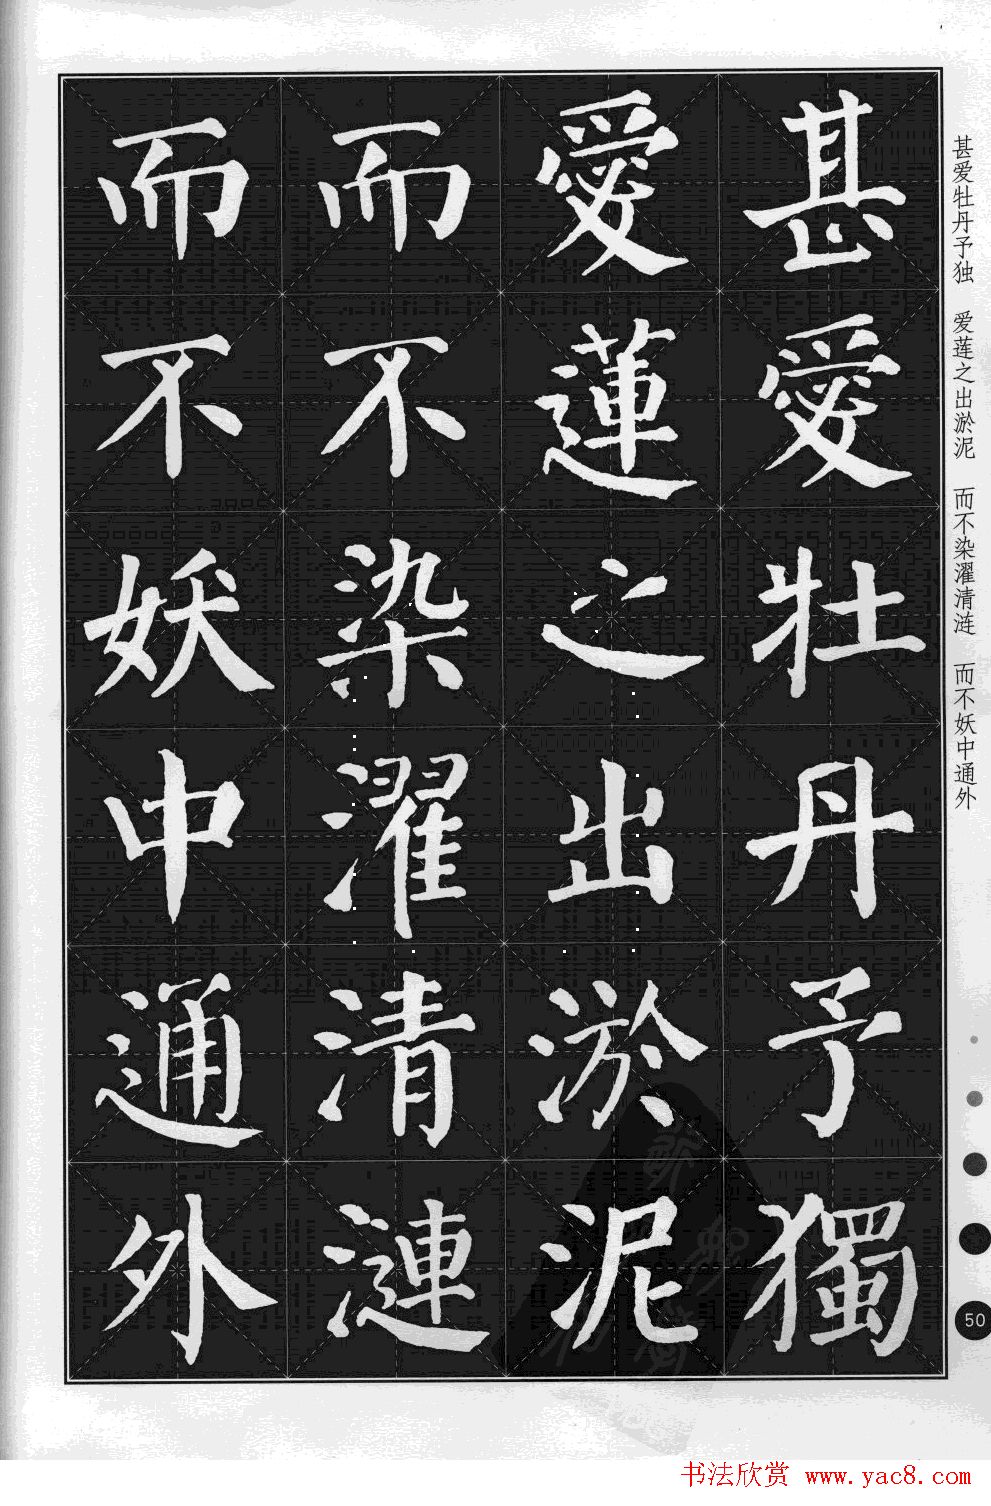 甚愛牡丹予獨
愛蓮之出淤泥
而不染濯清漣
而不妖中通外
甚爱牡丹予独 爱莲之出淤泥 而不染濯清涟 而不妖中通外
50
书法欣赏 www.yac8.com